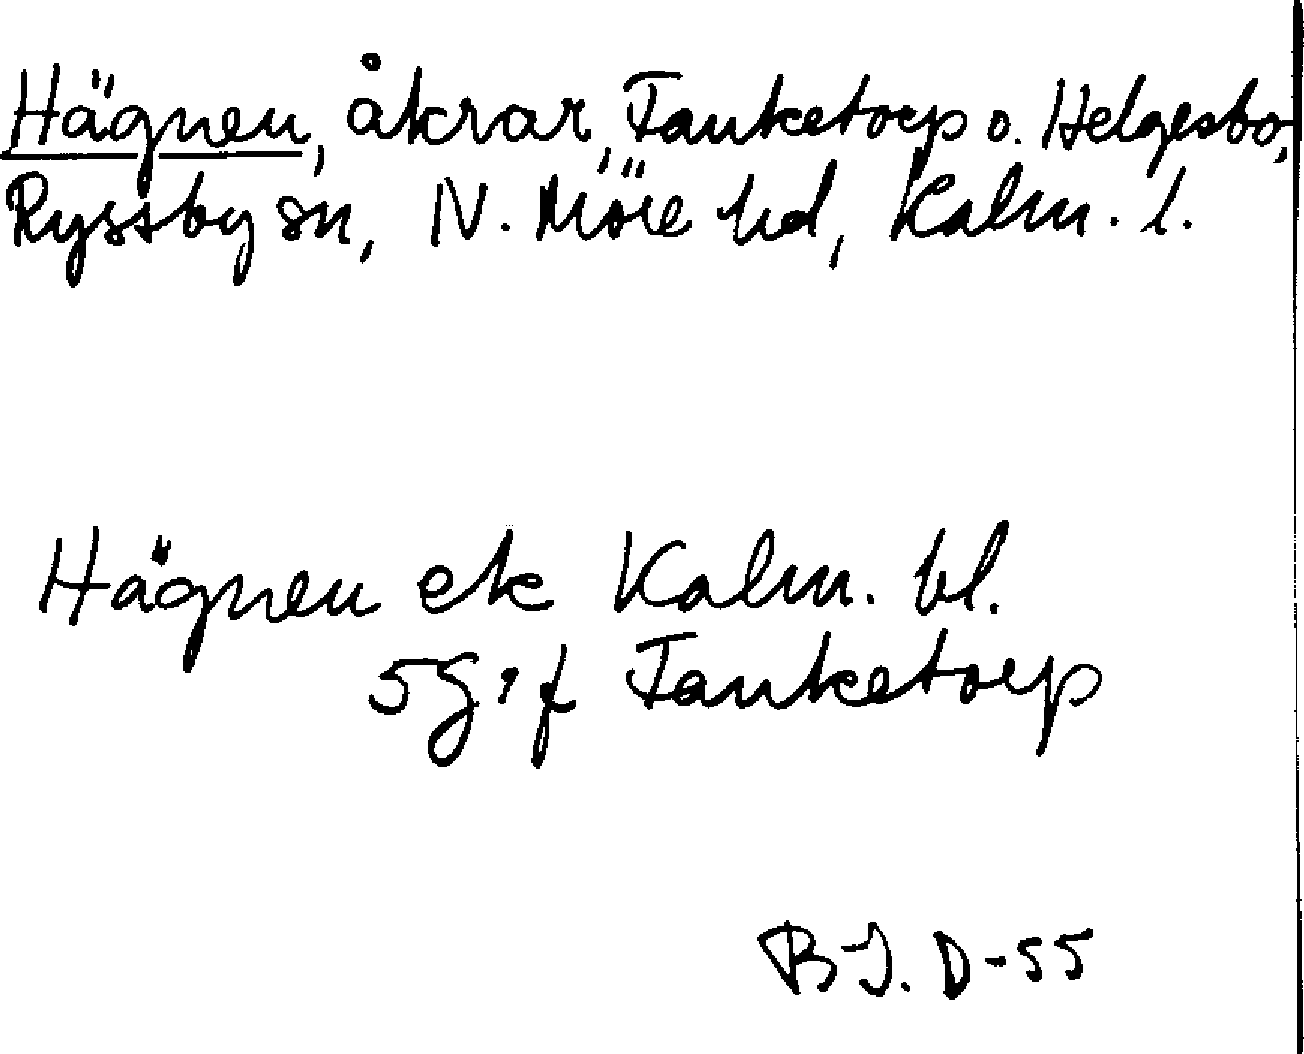 Hägnen, åkrar, Tanketorp o. Helgesbo,
Ryssby sn, N. Möre hd, Kalm. l.
Hägnen ek Kalm. bl.
5g:f Tanketorp
B-J. D-55